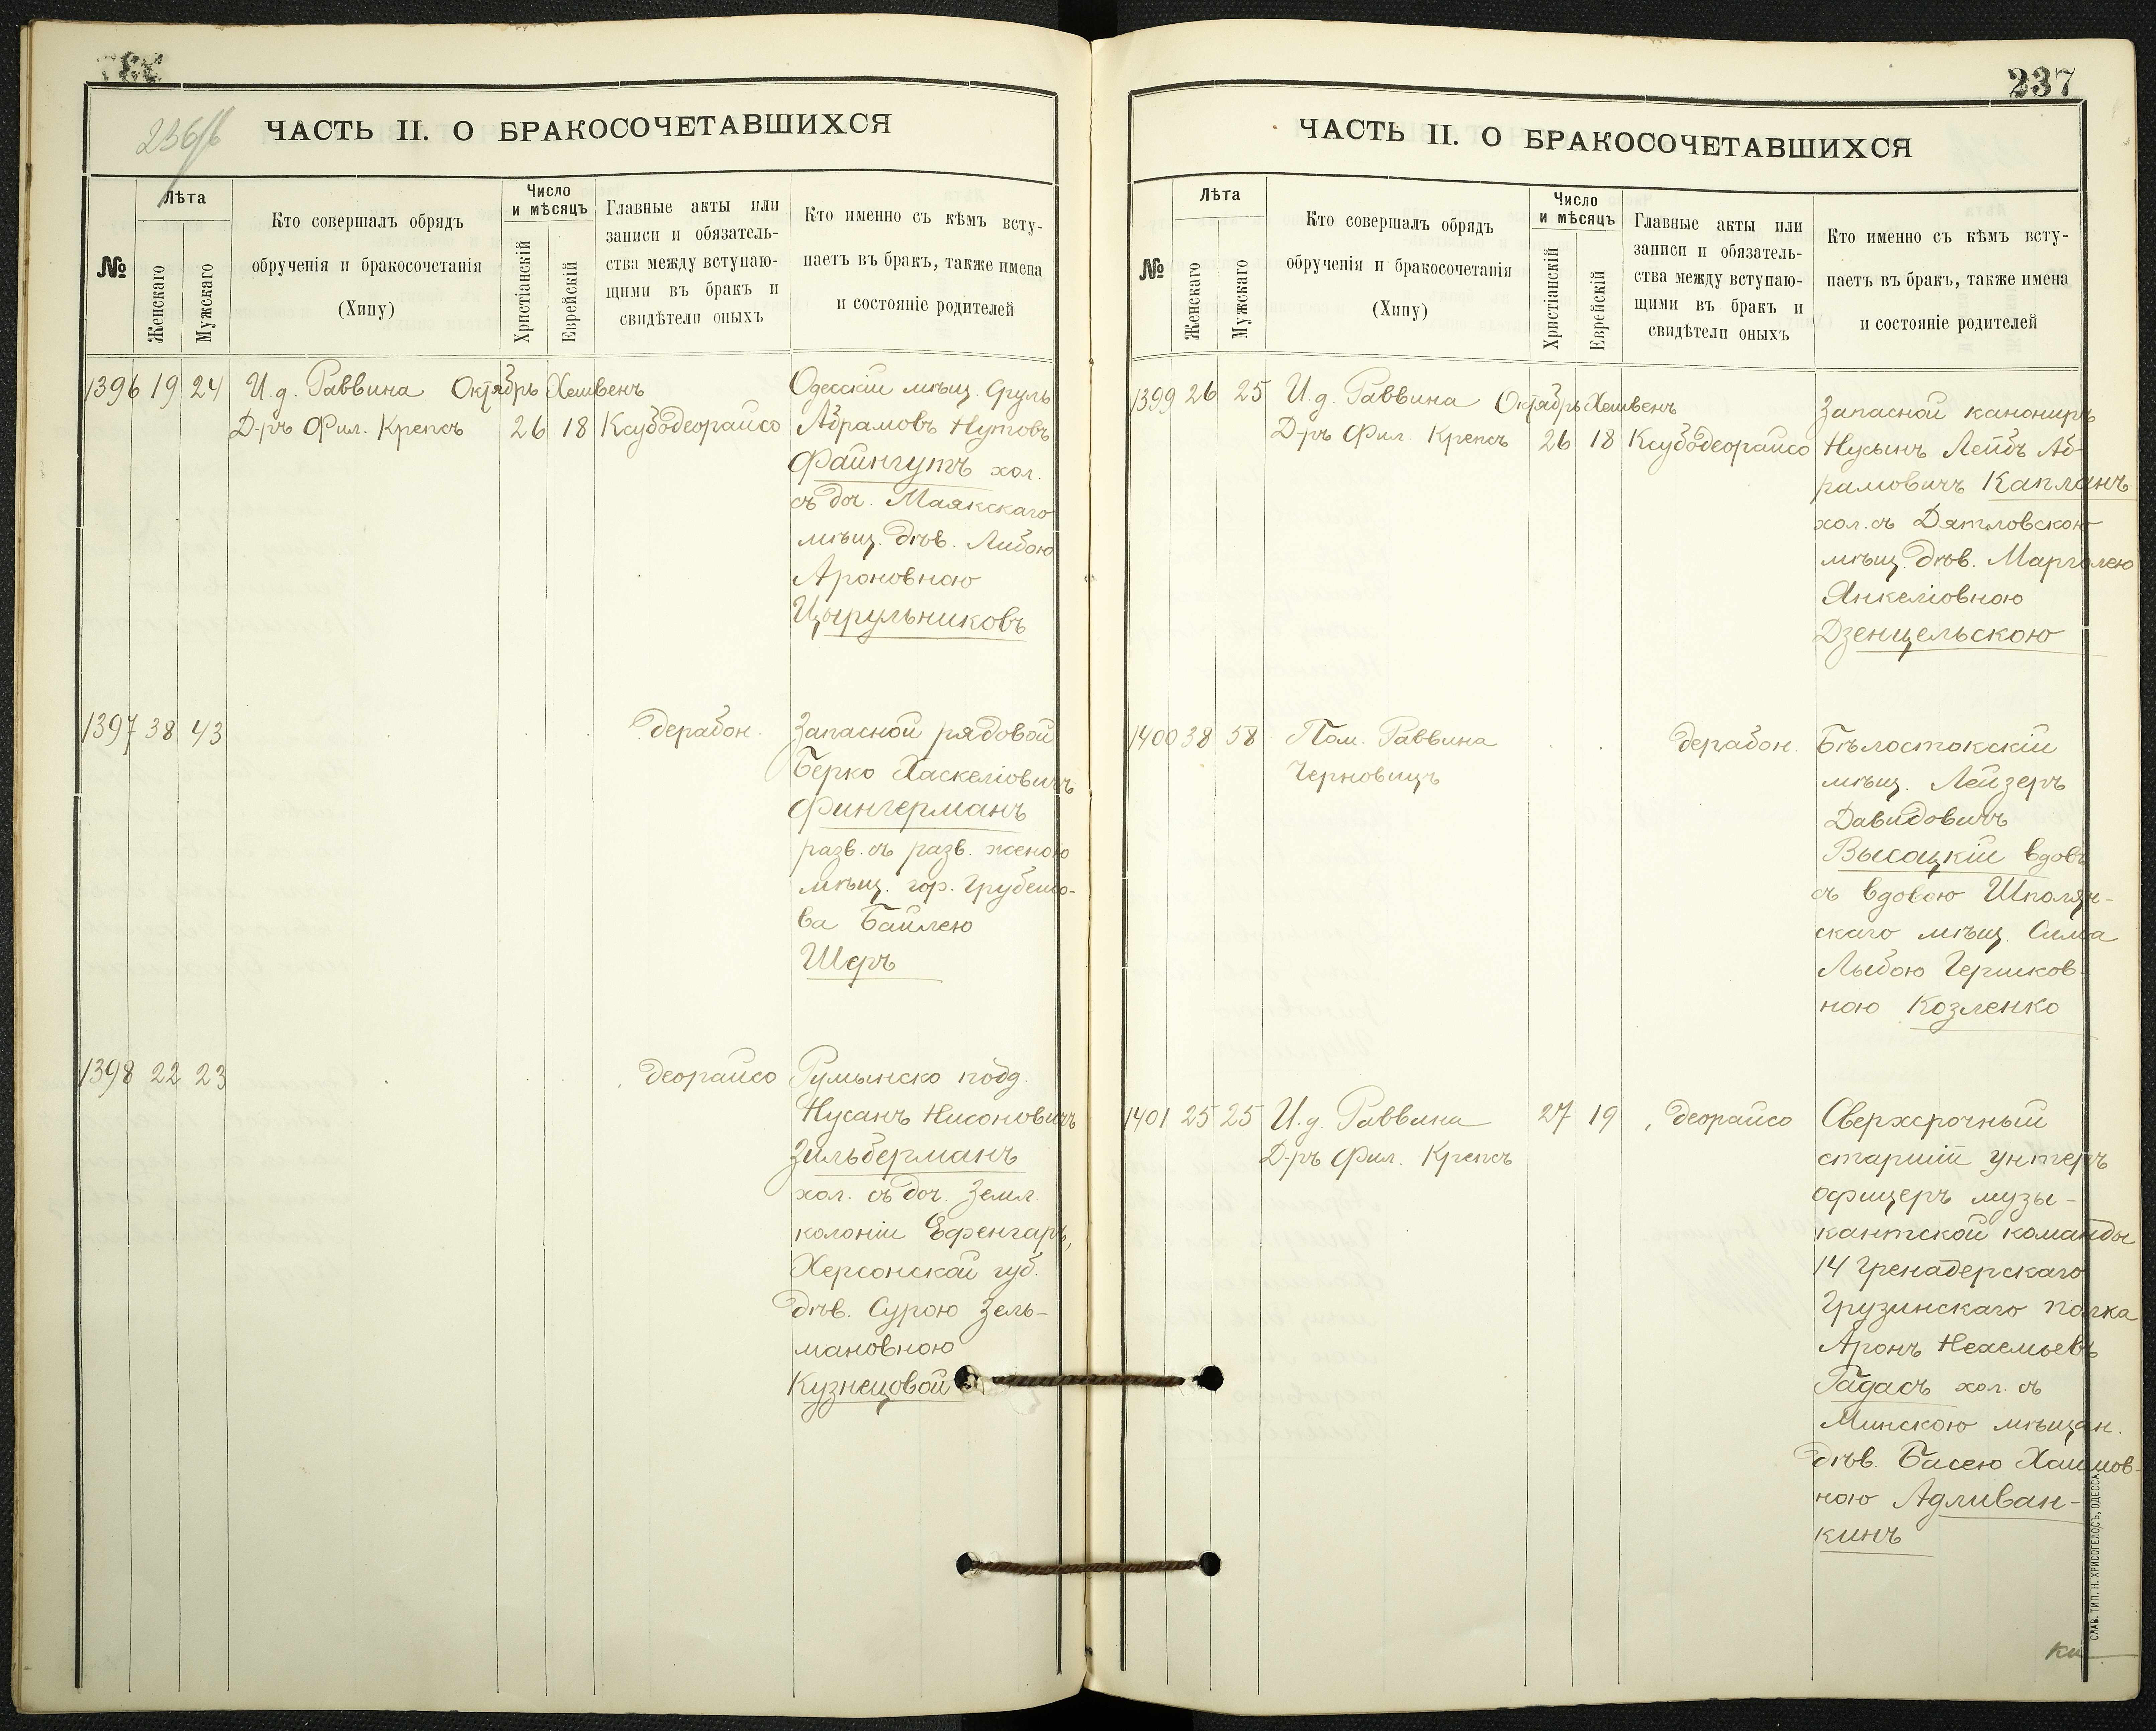 236/б
ЧАСТЬ II. О БРАКОСОЧЕТАВШИХСЯ
№
Лѣта
Женскаго
Мужскаго
Кто совершалъ обрядъ
обрученія и бракосочетанія
(Хипу)
Число
и мѣсяцъ
Христіанскій
Еврейскій
Главные акты или
записи и обязатель-
ства между вступаю-
щими въ бракъ и
свидѣтели оныхъ
Кто именно съ кѣмъ всту-
паетъ въ бракъ, также имена
и состояніе родителей
1396 19 24 И.д. Раввина Октябрь Хешвенъ
Д-ръ Фил. Крепсъ 26 18 Ксубодеорайсо
Одесскій мѣщ. Сруль
Абрамовъ Нутовъ
Файнгутъ хол.
съ доч. Маякскаго
мѣщ. дѣв. Либою
Ароновною
Цырульниковъ
1397 38 43 дерабон.
Запасной рядовой
Берко Хаскеліовичъ
Фингерманъ
разв. съ разв. женою
мѣщ. гор. Грубешо-
ва Байлею
Шеръ
1398 22 23 деорайсо
Румынско подд.
Нусанъ Нисоновичъ
Зильберманъ
хол. съ доч. Земл.
колоніи Ефенгаръ,
Херсонской губ.
дѣв. Сурою Зель-
мановною
Кузнецовой
237
ЧАСТЬ II. О БРАКОСОЧЕТАВШИХСЯ
№
Лѣта
Женскаго
Мужскаго
Кто совершалъ обрядъ
обрученія и бракосочетанія
(Хипу)
Число
и мѣсяцъ
Христіанскій
Еврейскій
Главные акты или
записи и обязатель-
ства между вступаю-
щими въ бракъ и
свидѣтели оныхъ
Кто именно съ кѣмъ всту-
паетъ въ бракъ, также имена
и состояніе родителей
1399 26 25 И.д. Раввина Октябрь Хешвенъ
Д-ръ Фил. Крепсъ 26 18 Ксубодеорайсо
Запасной канониръ
Нусынъ Лейбъ Аб-
рамовичъ Капланъ
хол. съ Дятловскою
мѣщ. дѣв. Марголею
Янкеліовною
Дзенцельскою
1400 38 58 Пом. Раввина дерабон.
Черновицъ
Бѣлостокскій
мѣщ. Лейзеръ
Давидовичъ
Высоцкій вдовъ
съ вдовою Шполян-
скаго мѣщ. Сима
Лыбою Гершков-
ною Козленко
1401 25 25 И.д. Раввина 27 19 деорайсо
Д-ръ Фил. Крепсъ
Сверхсрочный
старшій унтеръ
офицеръ музы-
кантской команды
14 Гренадерскаго
Грузинскаго полка
Аронъ Нехемьевъ
Гадасъ хол. съ
Минскою мѣщан.
дѣв. Басею Хаимов-
ною Адливан-
кинъ
СЛАВ. ТИП. Н. ХРИСОГЕЛОСЪ, ОДЕССА.